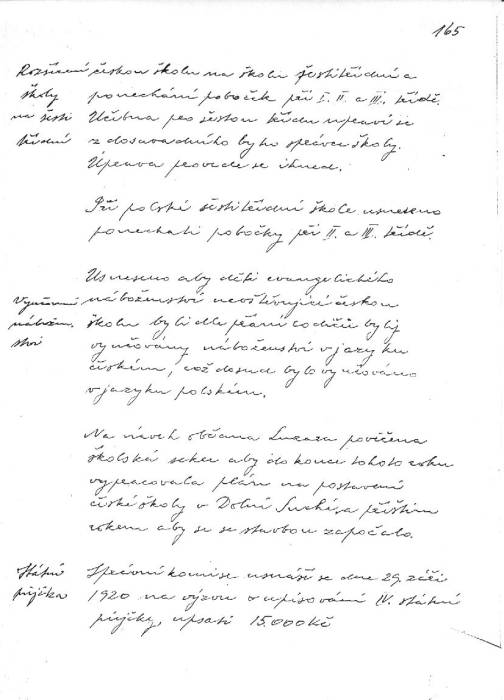 165
Rozšíření
školy
na šesti
třídní
českou školu na školu šestitřídní a
ponechání poboček při I. II. a III. třídě.
Učebna pro šestou třídu upraví se
z dosavadního bytu správce školy.
Úprava provede se ihned.
Při polské šestitřídní škole usneseno
ponechati pobočky při II. a III. třídě.
Vyučování
nábožen-
ství
Usneseno aby děti evangelického
náboženství navštěvující českou
školu byli dle přání rodičů byly
vyučovány náboženství v jazyku
českém, což dosud bylo vyučováno
v jazyku polském.
Na návrh občana Lazara pověřena
školská sekce aby do konce tohoto roku
vypracovala plán na postavení
české školy v Dolní Suché, a příštím
rokem aby se se stavbou započalo.
Státní
půjčka
Správní komise usnáší se dne 29. září
1920 na výzvu o upisování IV. státní
půjčky, upsati 15.000 Kč